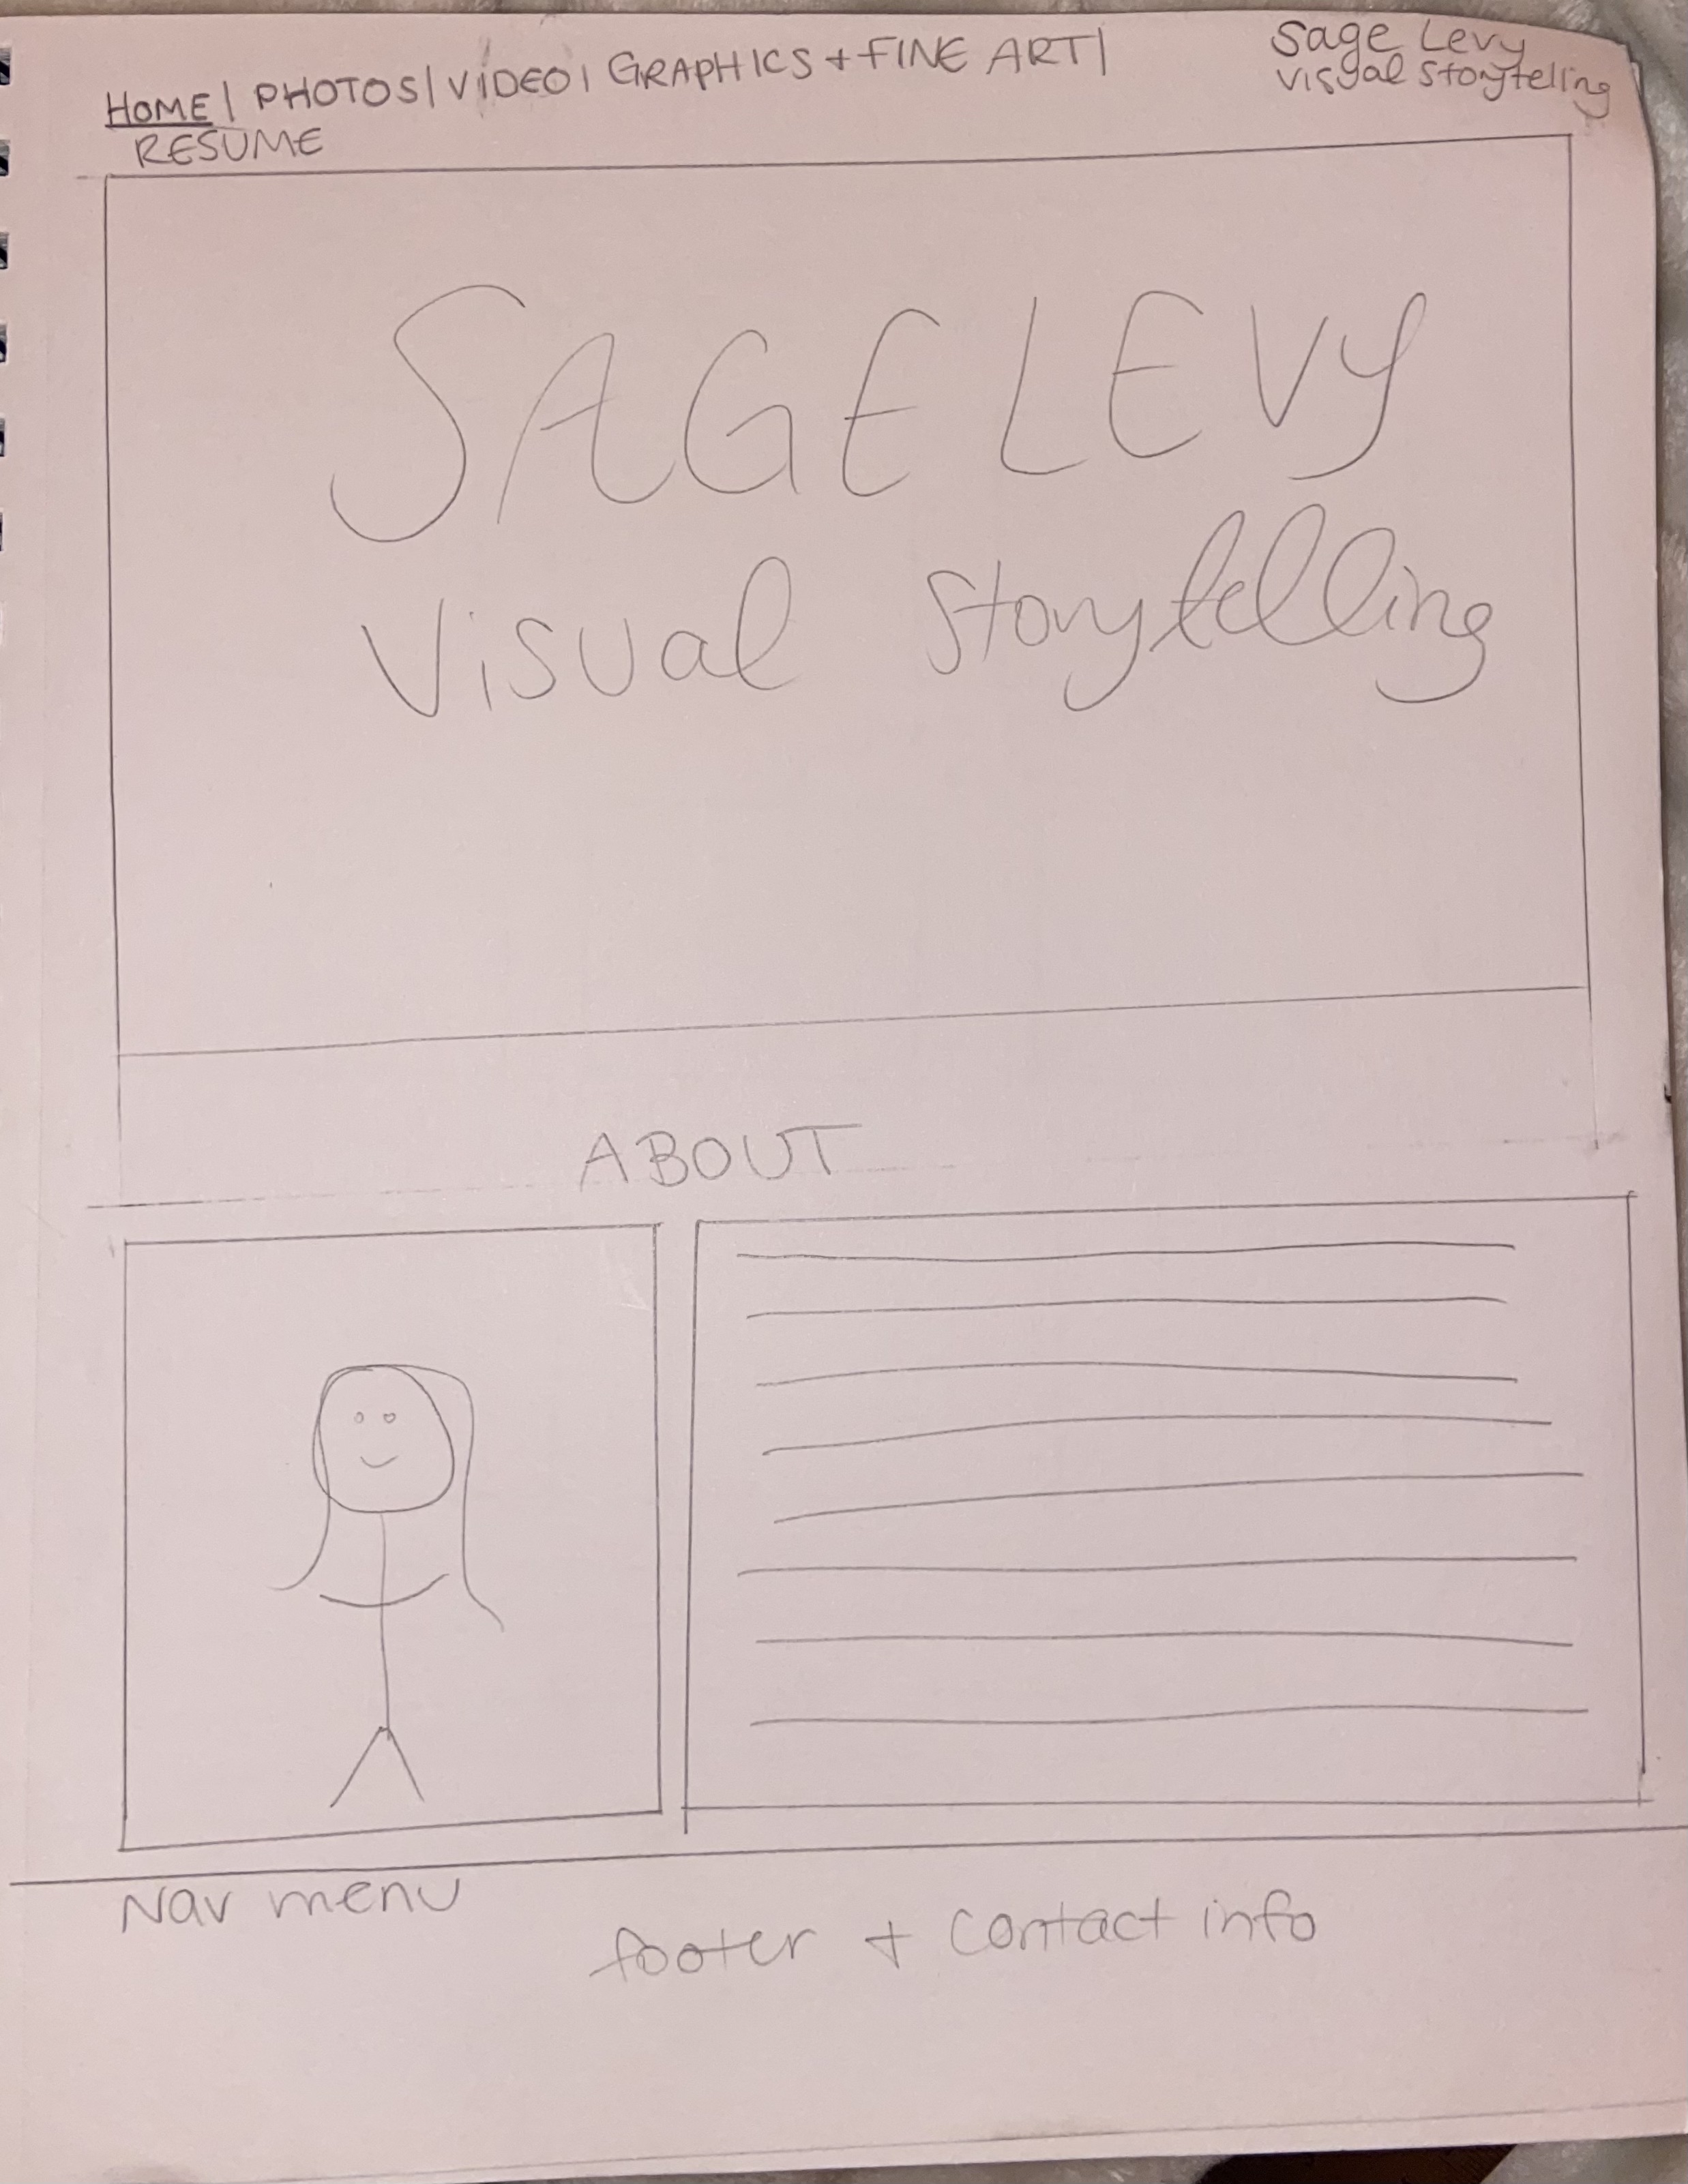 HOME | PHOTOS | VIDEO | GRAPHICS + FINE ART |
RESUME
Sage Levy
visual storytelling
SAGE LEVY
Visual Storytelling
ABOUT
Nav menu
footer + contact info